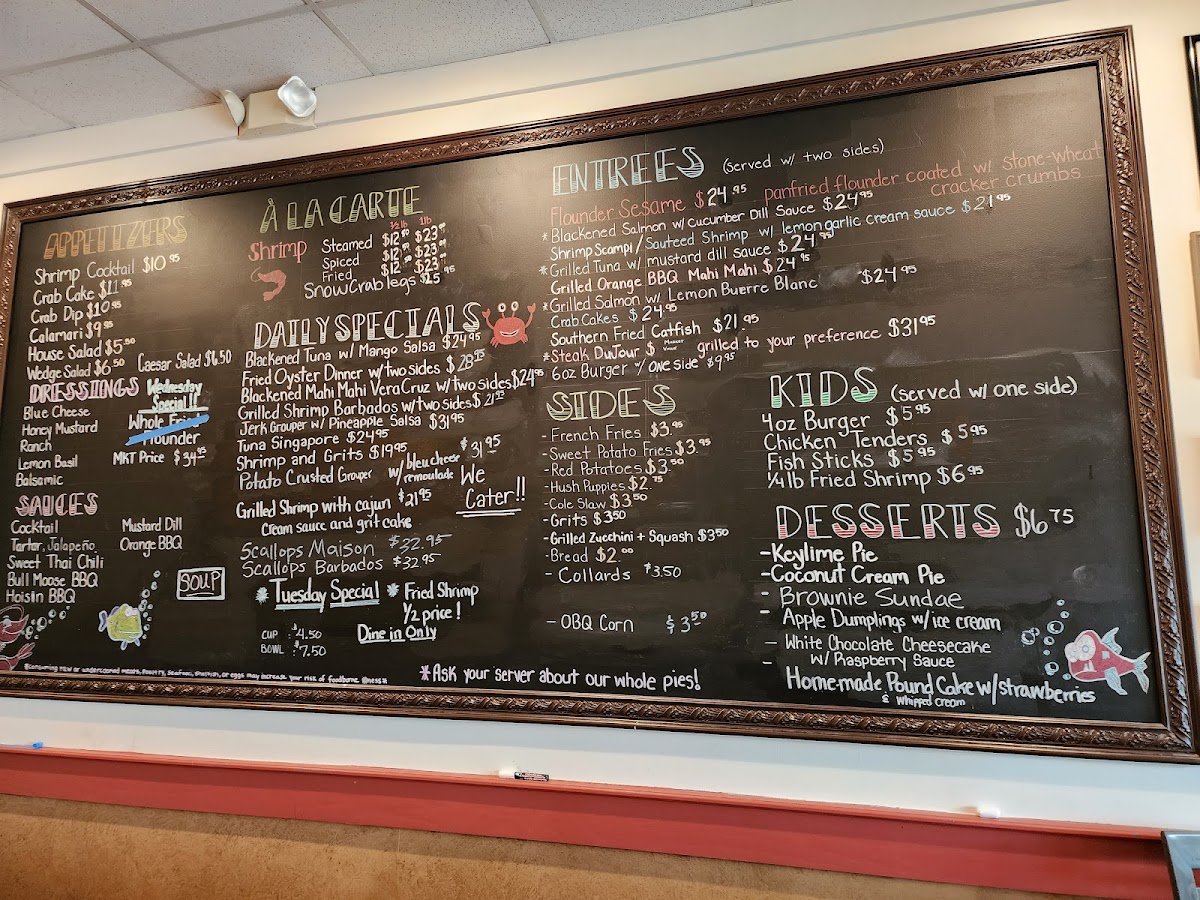 APPETIZERS
Shrimp Cocktail $10.95
Crab Cake $11.95
Crab Dip $10.95
Calamari $9.95
House Salad $5.50
Wedge Salad $6.50
Caesar Salad $6.50
DRESSINGS
Blue Cheese
Honey Mustard
Ranch
Lemon Basil
Balsamic
Wednesday
Special!!
Whole
Flounder
MKT Price $34.95
SAUCES
Cocktail
Tartar, Jalapeño
Sweet Thai Chili
Bull Moose BBQ
Hoisin BBQ
Mustard Dill
Orange BBQ
SOUP
CUP : $4.50
BOWL : $7.50
À LA CARTE
½ lb 1lb
Shrimp
Steamed $12 $23
Spiced $12 $23
Fried $12 $23
Snow Crab legs $25.95
DAILY SPECIALS
Blackened Tuna w/ Mango Salsa $24.95
Fried Oyster Dinner w/ two sides $28.95
Blackened Mahi Mahi VeraCruz w/ two sides $24.95
Grilled Shrimp Barbados w/ two sides $21.95
Jerk Grouper w/ Pineapple Salsa $31.95
Tuna Singapore $24.95
Shrimp and Grits $19.95
Potato Crusted Grouper w/ bleu cheese remoulade $31.95
Grilled Shrimp with cajun $21.95
Cream sauce and grit cake
Scallops Maison $32.95
Scallops Barbados $32.95
We
Cater!!
* Tuesday Special * Fried Shrimp
½ price!
Dine in Only
ENTREES (served w/ two sides)
Flounder Sesame $24.95 panfried flounder coated w/ stone-wheat
cracker crumbs
* Blackened Salmon w/ Cucumber Dill Sauce $24.95
Shrimp Scampi / Sauteed Shrimp w/ lemon garlic cream sauce $21.95
* Grilled Tuna w/ mustard dill sauce $24.95
Grilled Orange BBQ Mahi Mahi $24.95
* Grilled Salmon w/ Lemon Buerre Blanc $24.95
Crab Cakes $24.95
Southern Fried Catfish $21.95
* Steak DuJour $ Market Value grilled to your preference $31.95
* 6oz Burger w/ one side $9.95
SIDES
- French Fries $3.95
- Sweet Potato Fries $3.95
- Red Potatoes $3.50
- Hush Puppies $2.75
- Cole Slaw $3.50
- Grits $3.50
- Grilled Zucchini + Squash $3.50
- Bread $2.00
- Collards $3.50
- OBQ Corn $3.50
KIDS (served w/ one side)
4oz Burger $5.95
Chicken Tenders $5.95
Fish Sticks $5.95
¼ lb Fried Shrimp $6.95
DESSERTS $6.75
- Keylime Pie
- Coconut Cream Pie
- Brownie Sundae
- Apple Dumplings w/ ice cream
- White Chocolate Cheesecake
w/ Raspberry Sauce
- Home-made Pound Cake w/ strawberries
& whipped cream
*Consuming raw or undercooked meats, Poultry, Seafood, Shellfish, or eggs may increase your risk of foodborne illness
*Ask your server about our whole pies!